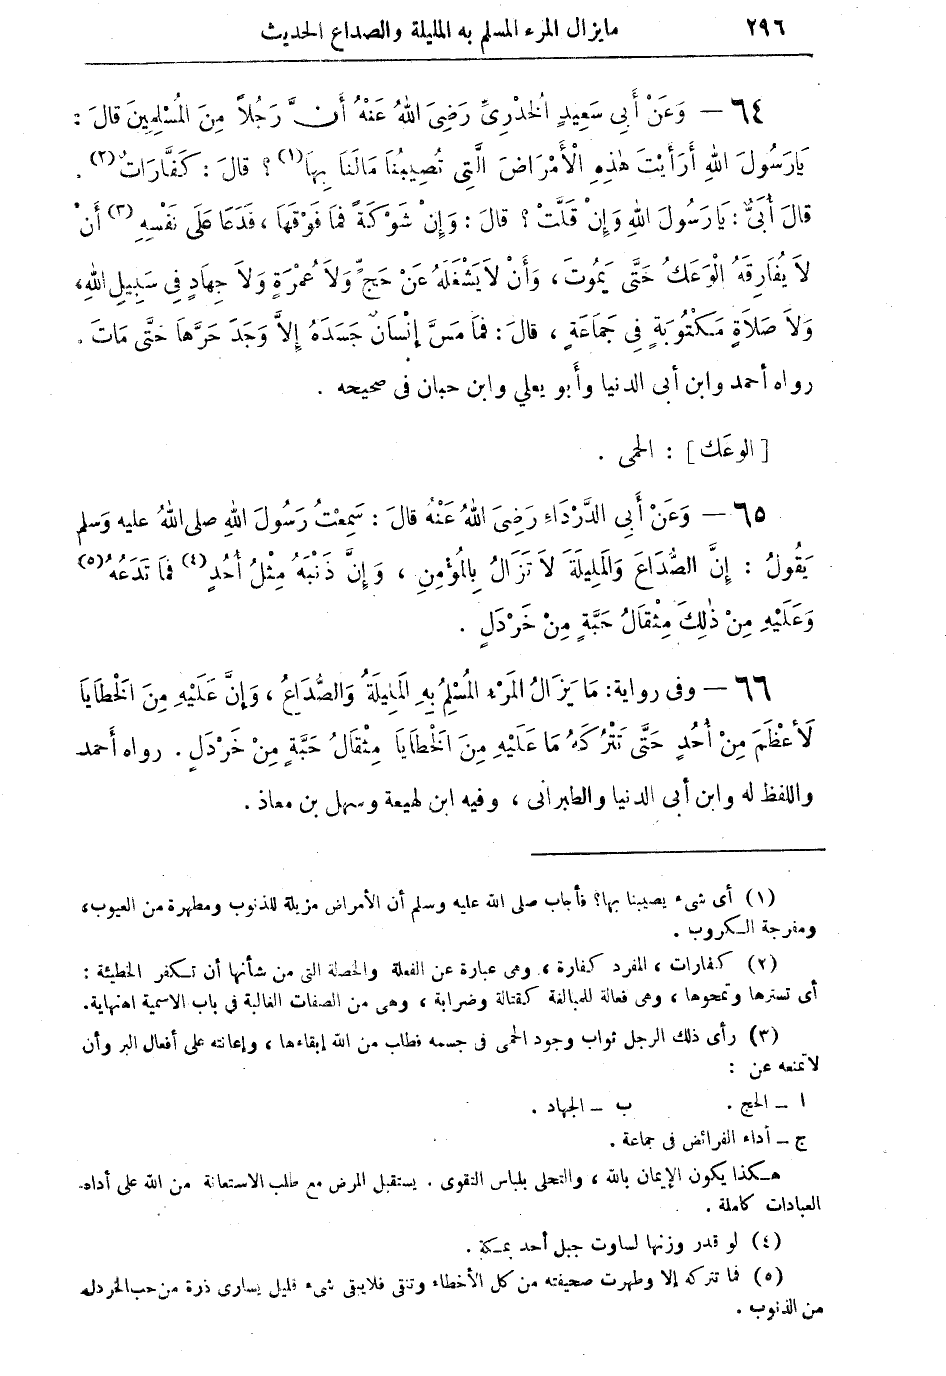 ٢٩٦ مايزال المرء المسلم به المليلة والصداع الحديث
٦٤ — وَعَنْ أَبِي سَعِيدٍ الْخُدْرِيِّ رَضِيَ اللهُ عَنْهُ أَنَّ رَجُلاً مِنَ الْمُسْلِمِينَ قَالَ :
يَارَسُولَ اللهِ أَرَأَيْتَ هٰذِهِ الْأَمْرَاضَ الَّتِي تُصِيبُنَا مَالَنَا بِهَا(١) ؟ قَالَ : كَفَّارَاتٌ(٢) .
قَالَ أُبَيٌّ : يَارَسُولَ اللهِ وَإِنْ قَلَّتْ ؟ قَالَ : وَإِنْ شَوْكَةً فَمَا فَوْقَهَا ، فَدَعَا عَلَى نَفْسِهِ(٣) أَنْ
لاَ يُفَارِقَهُ الْوَعَكُ حَتَّى يَمُوتَ ، وَأَنْ لاَ يَشْغَلَهُ عَنْ حَجٍّ وَلاَ عُمْرَةٍ وَلاَ جِهَادٍ فِي سَبِيلِ اللهِ،
وَلاَ صَلاَةٍ مَكْتُوبَةٍ فِي جَمَاعَةٍ ، قَالَ : فَمَا مَسَّ إِنْسَانٌ جَسَدَهُ إِلاَّ وَجَدَ حَرَّهَا حَتَّى مَاتَ .
رواه أحمد وابن أبى الدنيا وأبو يعلي وابن حبان فى صحيحه .
[الوعَك] : الحمى .
٦٥ — وَعَنْ أَبِي الدَّرْدَاءِ رَضِيَ اللهُ عَنْهُ قَالَ : سَمِعْتُ رَسُولَ اللهِ صلى اللهُ عليه وَسلم
يَقُولُ : إِنَّ الصُّدَاعَ وَالْمَلِيلَةَ لاَ تَزَالُ بِالْمُؤْمِنِ ، وَإِنَّ ذَنْبَهُ مِثْلُ أُحُدٍ(٤) فَمَا تَدَعُهُ(٥)
وَعَلَيْهِ مِنْ ذٰلِكَ مِثْقَالُ حَبَّةٍ مِنْ خَرْدَلٍ .
٦٦ — وفى رواية: مَا يَزَالُ الْمَرْءُ الْمُسْلِمُ بِهِ الْمَلِيلَةُ وَالصُّدَاعُ ، وَإِنَّ عَلَيْهِ مِنَ الْخَطَايَا
لَأَعْظَمَ مِنْ أُحُدٍ حَتَّى تَتْرُكَهُ مَا عَلَيْهِ مِنَ الْخَطَايَا مِثْقَالُ حَبَّةٍ مِنْ خَرْدَلٍ . رواه أحمد
واللفظ له وابن أبى الدنيا والطبرانى ، وفيه ابن لهيعة وسهل بن معاذ .
(١) أى شىء يصيبنا بها؟ فأجاب صلى الله عليه وسلم أن الأمراض مزيلة للذنوب ومطهرة من العيوب،
ومفرجة الكروب .
(٢) كفارات ، المفرد كفارة ، وهى عبارة عن الفعلة والخصلة التى من شأنها أن تكفر الخطيئة :
أى تسترها وتمحوها ، وهى فعالة للمبالغة كقتالة وضرابة ، وهى من الصفات الغالبة في باب الاسمية اهنهاية.
(٣) رأى ذلك الرجل ثواب وجود الحمى فى جسمه فطلب من الله إبقاءها ، وإعانته على أفعال البر وأن
لاتمنعه عن :
ا – الحج . ب – الجهاد .
ج – أداء الفرائض فى جماعة .
هكذا يكون الإيمان بالله ، والتحلى بلباس التقوى . يستقبل المرض مع طلب الاستعانة من الله على أداء
العبادات كاملة .
(٤) لو قدر وزنها لساوت جبل أحد بمكة .
(٥) فما تتركه إلا وطهرت صحيفته من كل الأخطاء وتنقى فلايبقى شىء قليل يسارى ذرة من حب الخردله
من الذنوب .